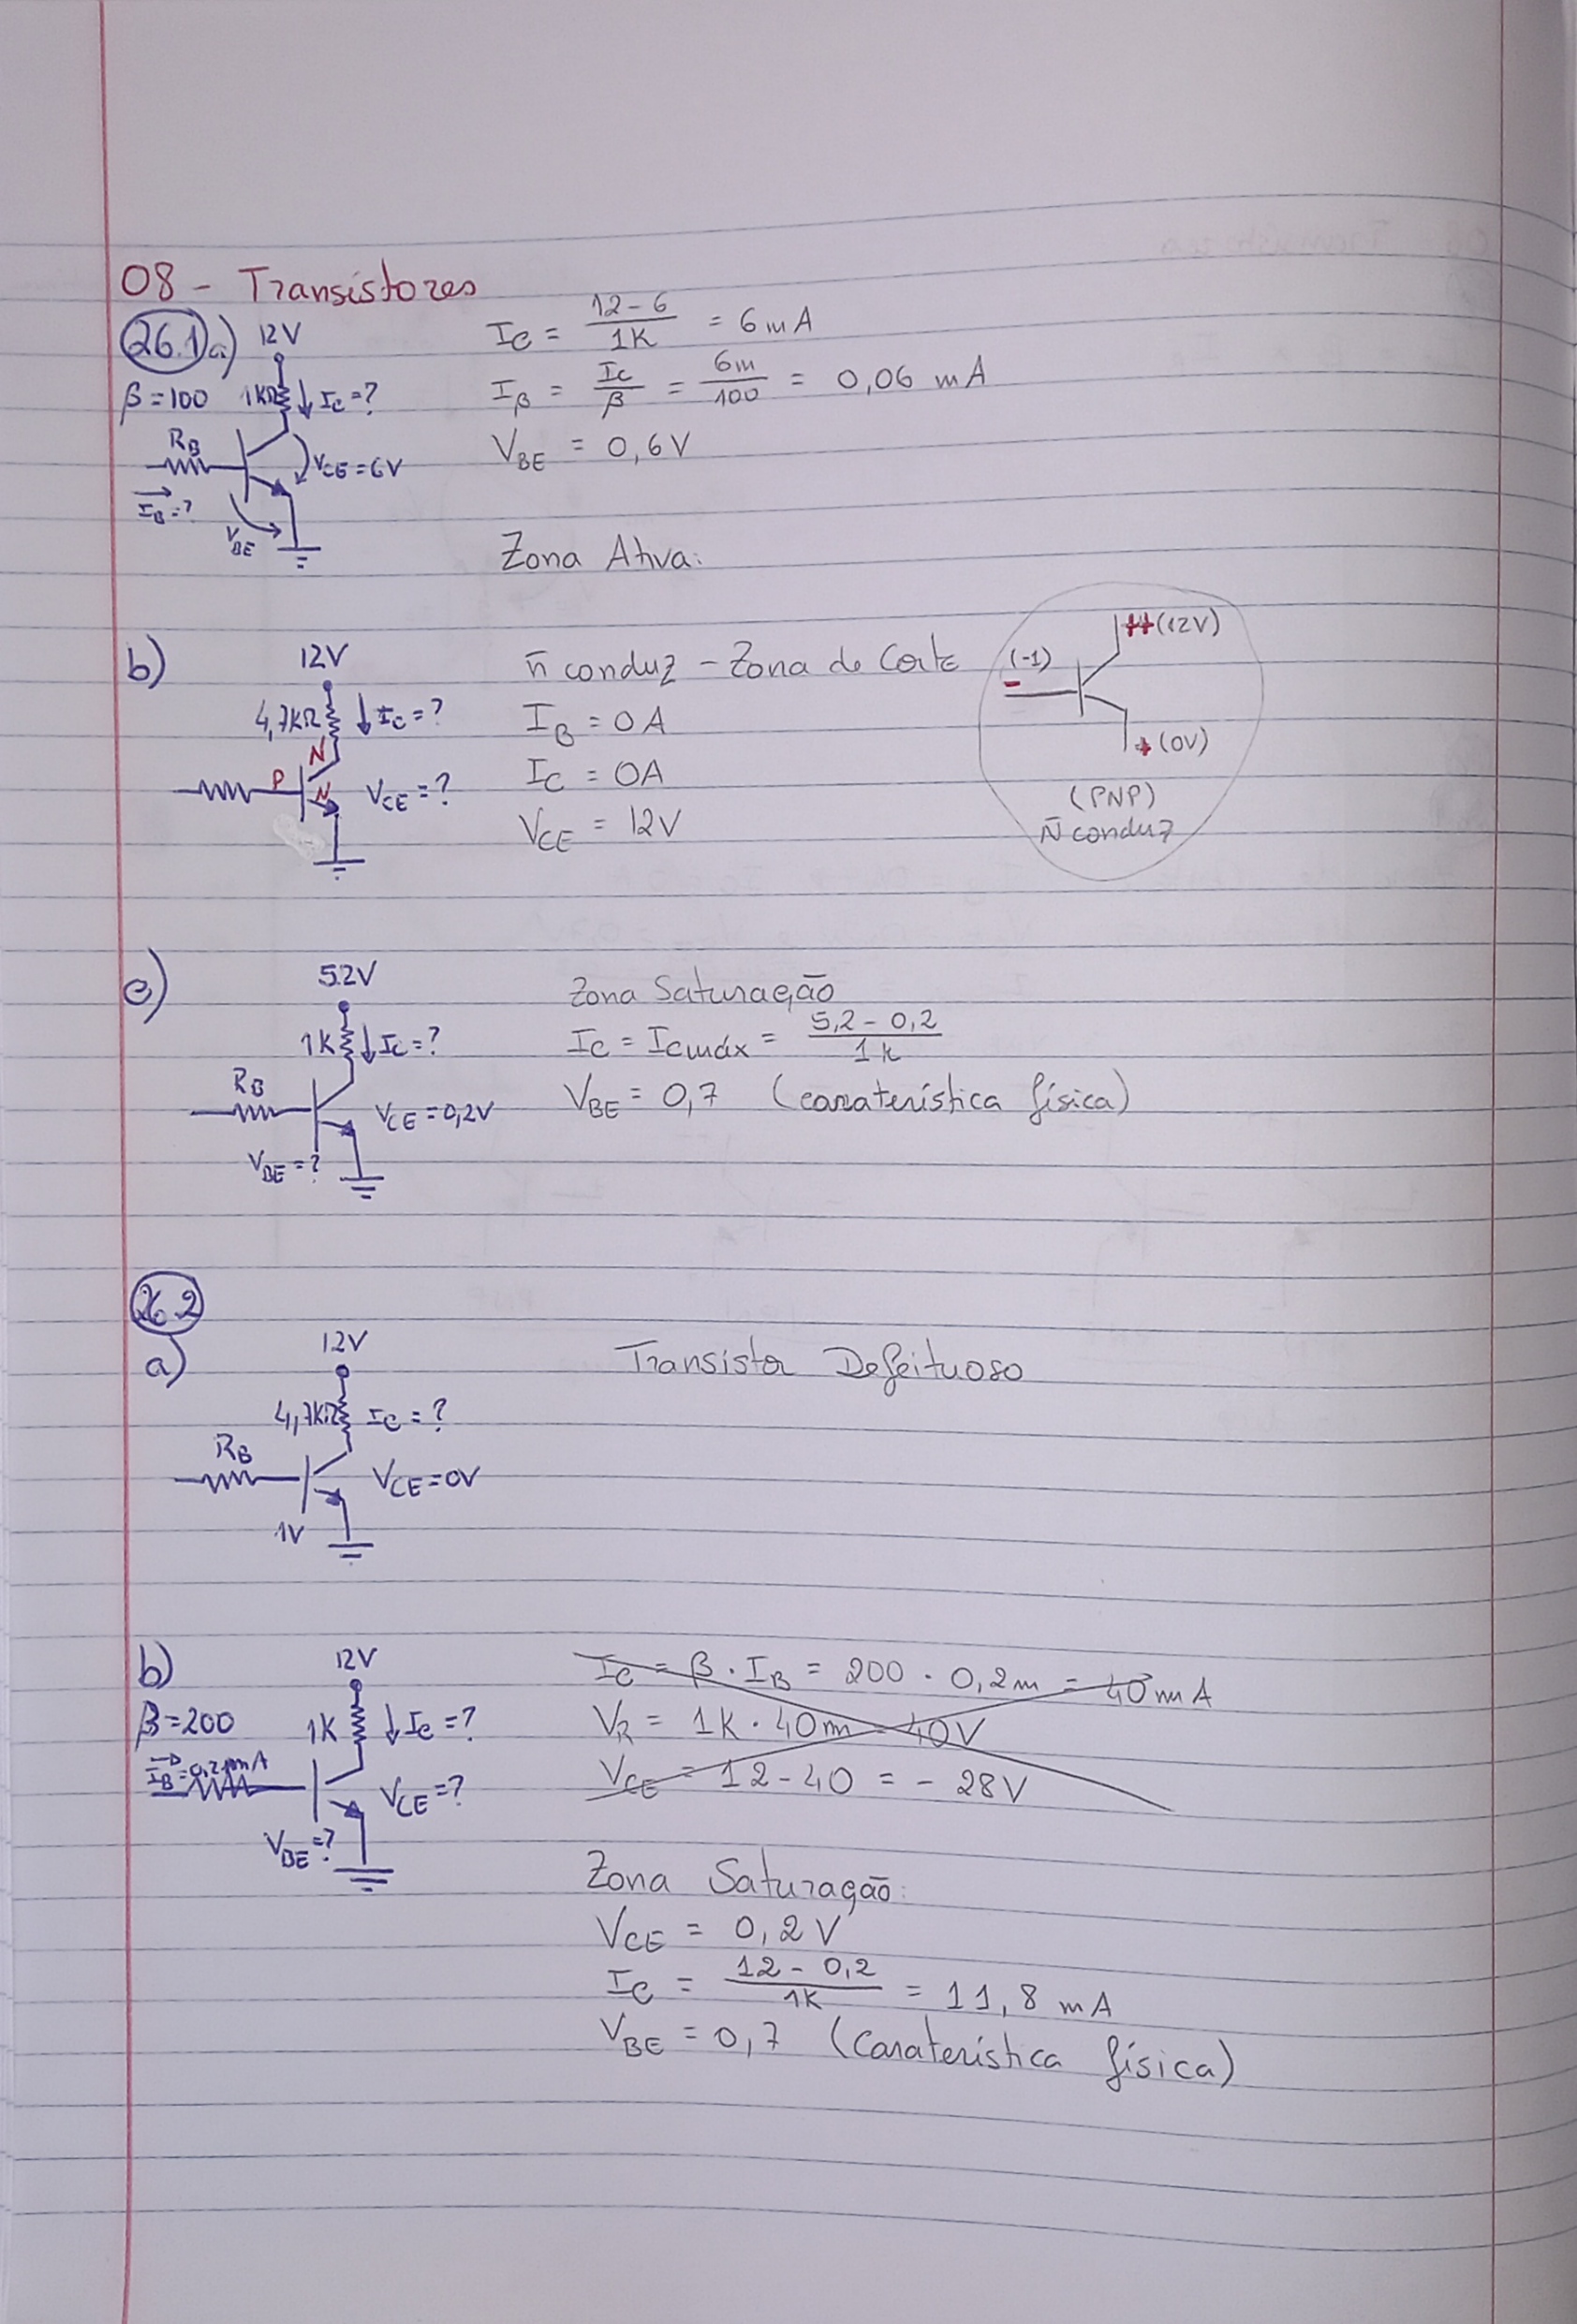 08 - Transistores
26.1 a)
12V
β=100
1KΩ
Ic=?
RB
VCE=6V
IB=?
VBE
IC = 12-6 / 1K = 6mA
Iβ = Ic / β = 6m / 100 = 0,06 mA
VBE = 0,6V
Zona Ativa:
b)
12V
4,7KΩ
Ic=?
N
P
N
VCE=?
n̄ conduz - Zona de Corte
IB = 0A
IC = 0A
VCE = 12V
++(12V)
(-1)
-
+(0V)
(PNP)
N̄ conduz
c)
5.2V
1K
Ic=?
RB
VCE=0,2V
VBE=?
Zona Saturação
Ic = Icmáx = 5,2-0,2 / 1k
VBE = 0,7 (caraterística física)
26.2
a)
12V
4,7KΩ
Ic=?
RB
VCE=0V
1V
Transistor Defeituoso
b)
12V
β=200
1K
Ic=?
IB=0,2mA
VCE=?
VBE=?
IC = β.IB = 200.0,2m = 40mA
VR = 1K.40m = 40V
VCE = 12-40 = -28V
Zona Saturação:
VCE = 0,2V
IC = 12-0,2 / 1K = 11,8 mA
VBE = 0,7 (Caraterística física)